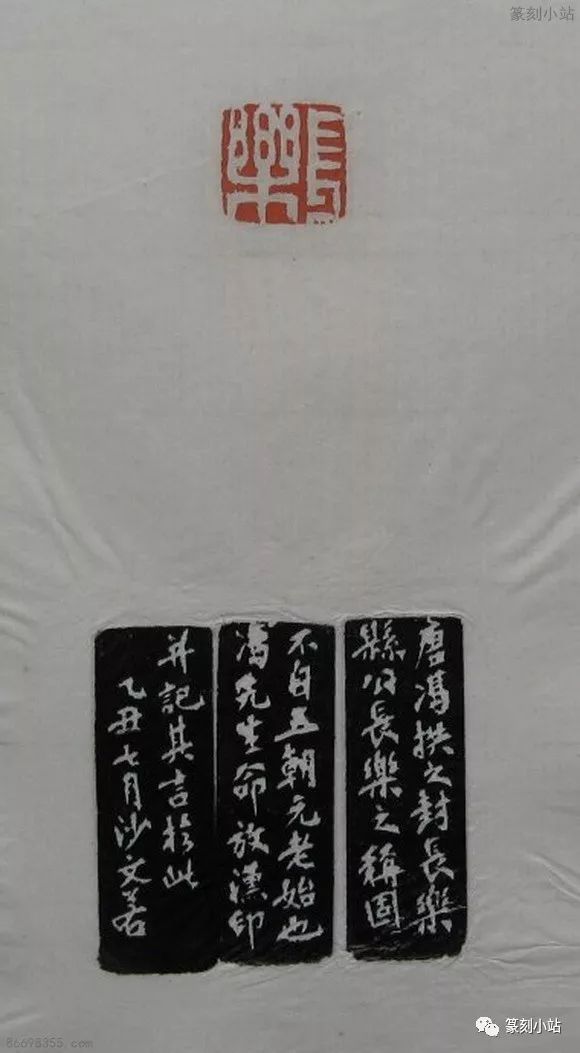 篆刻小站
長樂
唐馮拱之封長樂
縣公長樂之稱固
不自五朝元老始也
馮先生命放漢印
并記其言於此
乙丑七月沙文若
篆刻小站
86698355.com